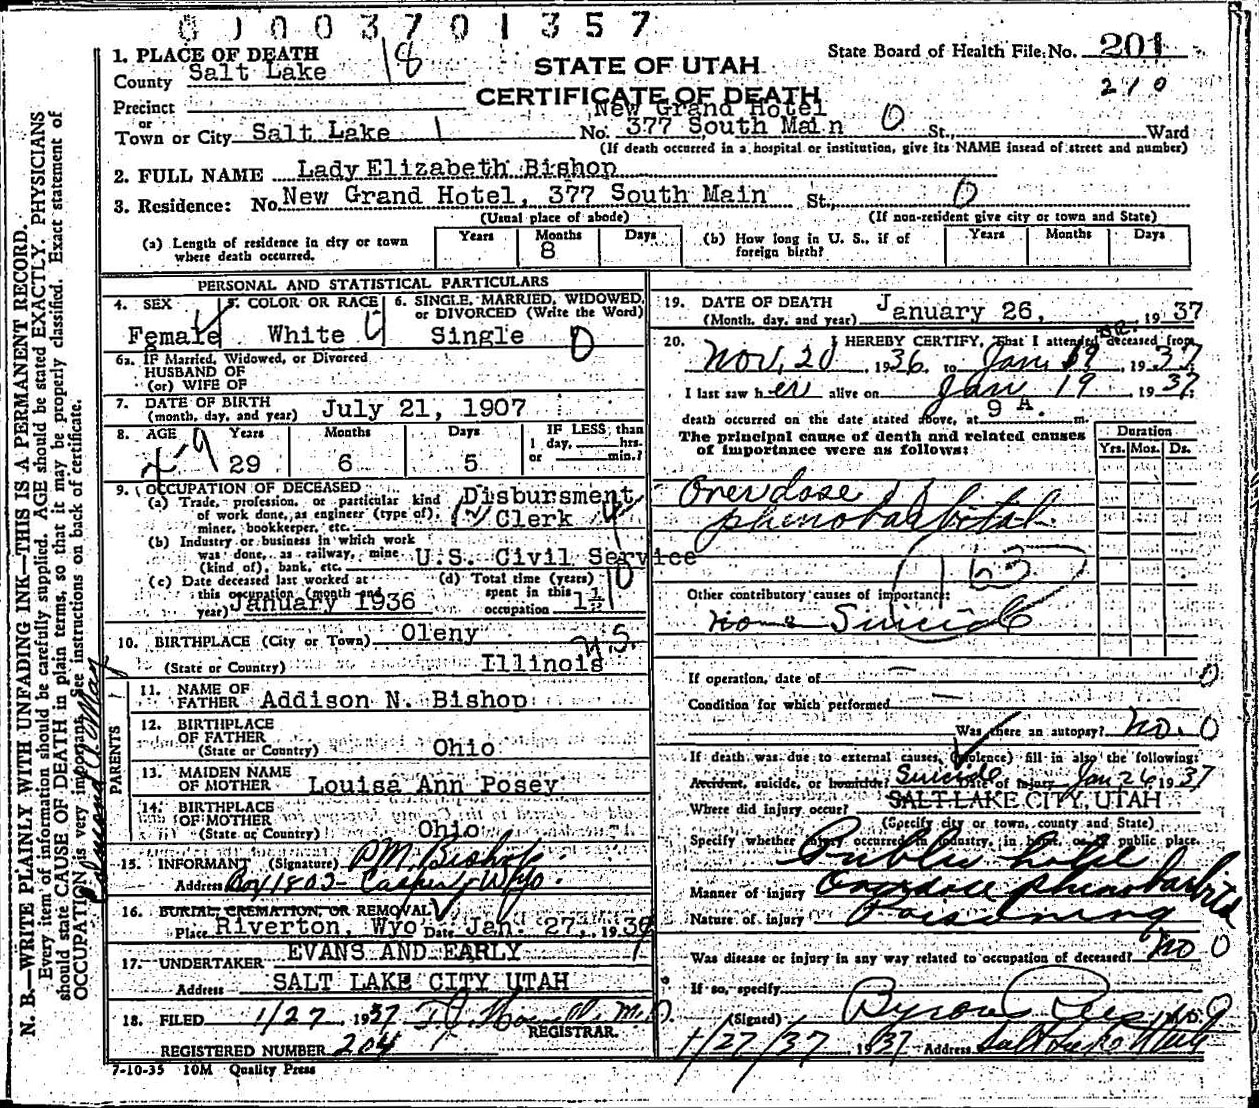 0 0 0 3 7 0 1 3 5 7
1. PLACE OF DEATH
County Salt Lake 18
STATE OF UTAH
State Board of Health File No. 201
210
CERTIFICATE OF DEATH
Precinct
or
Town or City Salt Lake 1
New Grand Hotel
No. 377 South Main 0 St., Ward
(If death occurred in a hospital or institution, give its NAME insead of street and number)
2. FULL NAME Lady Elizabeth Bishop
3. Residence: No. New Grand Hotel, 377 South Main St., 0
(Usual place of abode) (If non-resident give city or town and State)
(a) Length of residence in city or town where death occurred. Years Months 8 Days
(b) How long in U. S., if of foreign birth? Years Months Days
PERSONAL AND STATISTICAL PARTICULARS
4. SEX 5. COLOR OR RACE 6. SINGLE, MARRIED, WIDOWED, or DIVORCED (Write the Word)
Female White Single 0
6a. IF Married, Widowed, or Divorced
HUSBAND OF
(or) WIFE OF
7. DATE OF BIRTH
(month, day, and year) July 21, 1907
8. AGE Years Months Days IF LESS than
1 day, hrs.
or min.?
29 6 5
9. OCCUPATION OF DECEASED
(a) Trade, profession, or particular kind of work done, as engineer (type of), miner, bookkeeper, etc. Disbursment Clerk
(b) Industry or business in which work was done, as railway, mine (kind of), bank, etc. U.S. Civil Service
(c) Date deceased last worked at this occupation (month and year) January 1936
(d) Total time (years) spent in this occupation 1 1/2
10
10. BIRTHPLACE (City or Town) Oleny
U.S.
(State or Country) Illinois
PARENTS
11. NAME OF FATHER Addison N. Bishop
12. BIRTHPLACE OF FATHER
(State or Country) Ohio
13. MAIDEN NAME OF MOTHER Louisa Ann Posey
14. BIRTHPLACE OF MOTHER
(State or Country) Ohio
15. INFORMANT (Signature) P.M. Bishop
Address Box 1803 - Casper, Wyo.
16. BURIAL, CREMATION, OR REMOVAL
Place Riverton, Wyo Date Jan. 27, 1937
17. UNDERTAKER EVANS AND EARLY
Address SALT LAKE CITY UTAH
18. FILED 1/27, 1937 M.D.
REGISTRAR.
REGISTERED NUMBER 204
7-10-35 10M Quality Press
19. DATE OF DEATH
(Month, day, and year) January 26, 1937
20. I HEREBY CERTIFY, That I attended deceased from
Nov. 20 1936 to Jan 19 1937
I last saw her alive on Jan 19 1937
death occurred on the date stated above, at 9 A. m.
The principal cause of death and related causes of importance were as follows:
Duration
Yrs. Mos. Ds.
Overdose
phenobarbital
163
Other contributory causes of importance:
none Suicide
If operation, date of — 0
Condition for which performed —
Was there an autopsy? No. 0
If death was due to external causes, (violence) fill in also the following:
Accident, suicide, or homicide? Suicide Date of injury Jan 26 1937
Where did injury occur? SALT LAKE CITY, UTAH
(Specify city or town, county and State)
Specify whether injury occurred in industry, in home, or in public place.
Public hotel
Manner of injury Overdose phenobarbital
Nature of injury Poisoning
Was disease or injury in any way related to occupation of deceased? No 0
If so, specify
(Signed) Byron Rees M.D.
1/27/37, 1937 Address Salt Lake Utah
N. B.—WRITE PLAINLY WITH UNFADING INK—THIS IS A PERMANENT RECORD.
Every item of information should be carefully supplied. AGE should be stated EXACTLY. PHYSICIANS
should state CAUSE OF DEATH in plain terms, so that it may be properly classified. Exact statement of
OCCUPATION is very important. See instructions on back of certificate.